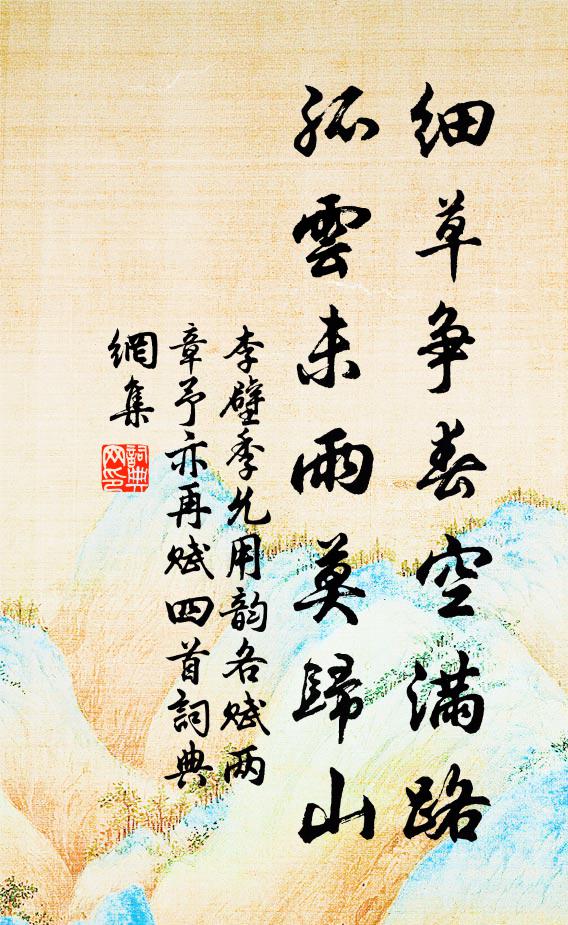 细草争春空满路
孤雲未雨莫歸山
李壁季允用韵各赋两
章予亦再赋四首詞典
網集
詞典网印